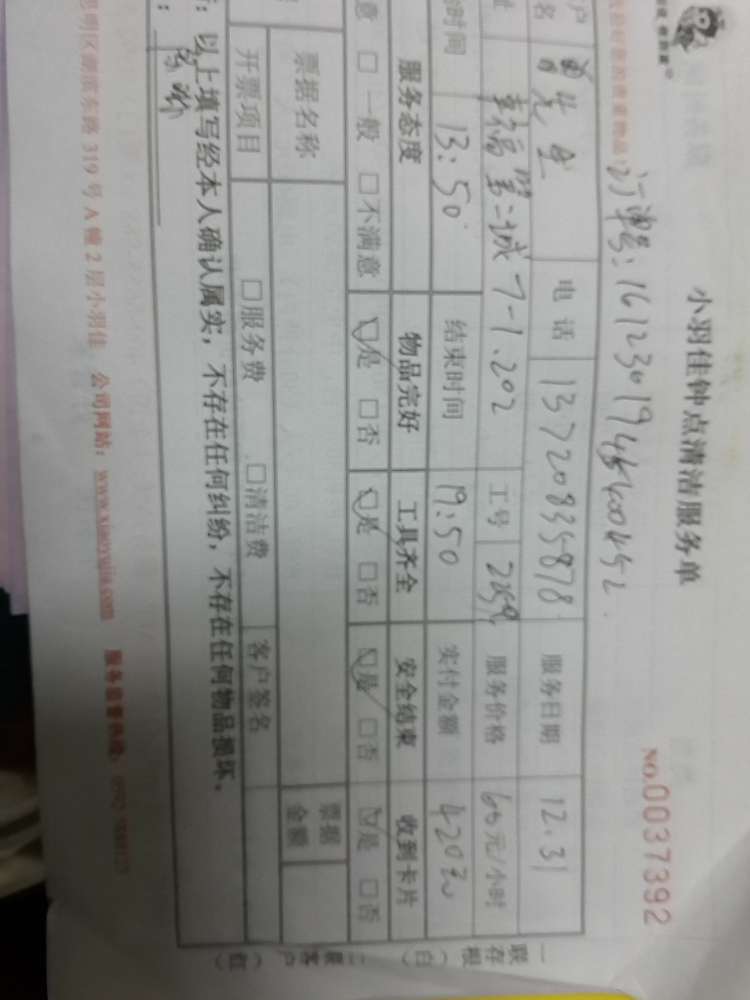 小羽佳钟点清洁服务单
NO.0037392
订单号:
户名 曾先生 电话 13720835878 服务日期 12.31
址 幸福第二城 7-1.202 工号 服务价格 60元/小时
时间 13:50 结束时间 19:50 实付金额 420元
服务态度 物品完好 工具齐全 安全结束 收到卡片
意 □一般 □不满意 □是 □否 □是 □否 □是 □否 □是 □否
票据名称 票据金额
开票项目 □服务费 □清洁费 客户签名
以上填写经本人确认属实,不存在任何纠纷,不存在任何物品损坏。
思明区湖滨东路 319 号 A 幢 2 层小羽佳 公司网站: www.xiaoyujia.com 服务监督热线:
一联存根(白) 二联客户(红)